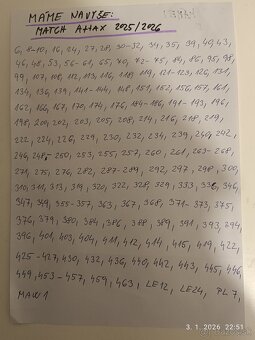 MÁME NAVYŠE:
MATCH ATTAX 2025/2026
6, 8-10, 16, 24, 27, 28, 30-32, 34, 35, 39, 40, 43,
46, 48, 53, 56-61, 65, 70, 72-75, 84, 86, 95, 98,
99, 107, 108, 112, 113, 116, 118, 119, 121-123, 126, 131,
134, 136, 139, 141-144, 148, 151, 152, 156, 157, 161,
162, 166, 167, 170, 174, 176, 184-186, 191-193, 196,
198, 200, 202, 203, 205, 208, 214, 216, 218, 219,
222, 224, 226, 229, 230, 232, 234, 239, 240, 242,
246, 248-250, 253, 255, 257, 260, 261, 263-268,
271, 275, 276, 282, 287-289, 292, 297, 298, 300,
310, 311, 313, 319, 320, 322, 328, 329, 333, 346,
347, 349, 355-357, 363, 367, 368, 371-373, 375,
376, 379, 380, 384, 386, 388, 389, 391, 393, 394,
396, 401, 403, 404, 411, 412, 414, 415, 419, 422,
425-427, 430, 432, 436, 440, 442, 443, 445, 446,
449, 453-457, 459, 463, LE12, LE24, PL 7,
MAN 1
3. 1. 2026 22:51